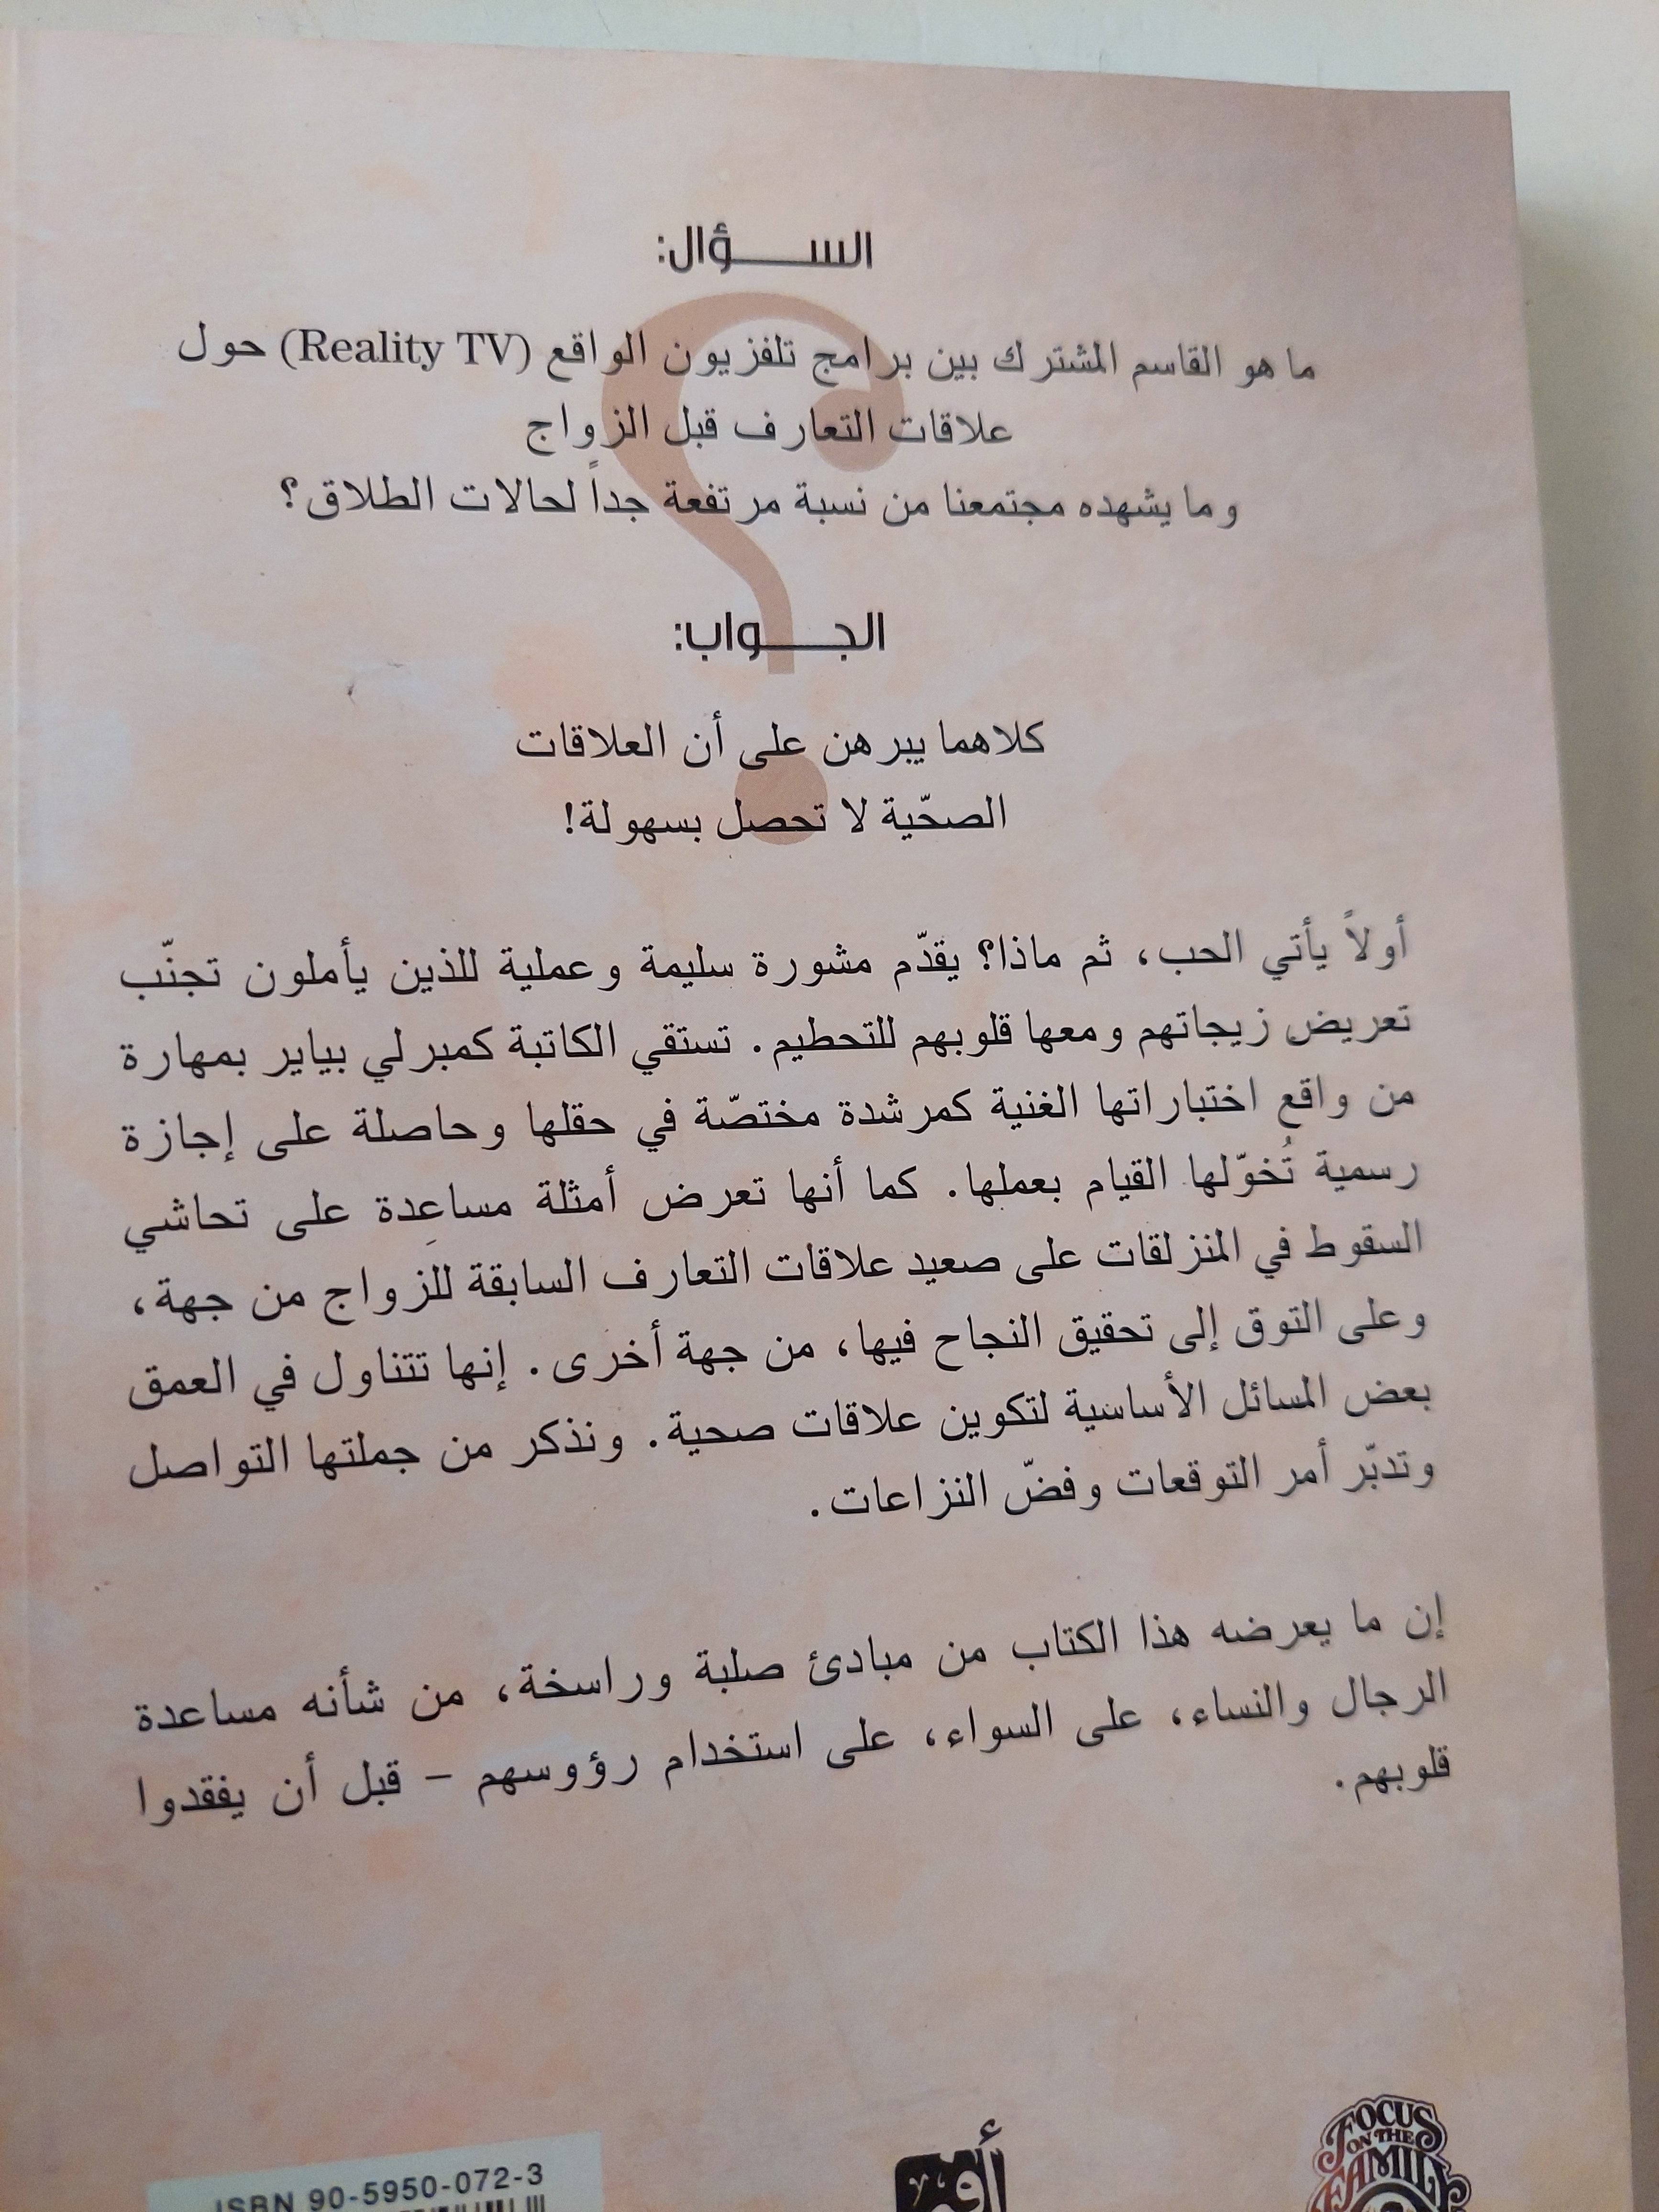 السؤال:
ما هو القاسم المشترك بين برامج تلفزيون الواقع (Reality TV) حول
علاقات التعارف قبل الزواج
وما يشهده مجتمعنا من نسبة مرتفعة جداً لحالات الطلاق؟
الجواب:
كلاهما يبرهن على أن العلاقات
الصحّية لا تحصل بسهولة!
أولاً يأتي الحب، ثم ماذا؟ يقدّم مشورة سليمة وعملية للذين يأملون تجنّب
تعريض زيجاتهم ومعها قلوبهم للتحطيم. تستقي الكاتبة كمبرلي بياير بمهارة
من واقع اختباراتها الغنية كمرشدة مختصّة في حقلها وحاصلة على إجازة
رسمية تُخوّلها القيام بعملها. كما أنها تعرض أمثلة مساعِدة على تحاشي
السقوط في المنزلقات على صعيد علاقات التعارف السابقة للزواج من جهة،
وعلى التوق إلى تحقيق النجاح فيها، من جهة أخرى. إنها تتناول في العمق
بعض المسائل الأساسية لتكوين علاقات صحية. ونذكر من جملتها التواصل
وتدبّر أمر التوقعات وفضّ النزاعات.
إن ما يعرضه هذا الكتاب من مبادئ صلبة وراسخة، من شأنه مساعدة
الرجال والنساء، على السواء، على استخدام رؤوسهم – قبل أن يفقدوا
قلوبهم.
FOCUS
ON THE
FAMILY
ISBN 90-5950-072-3